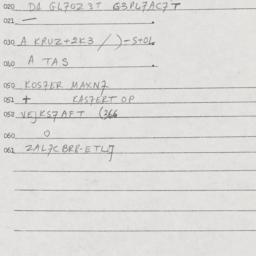 020 DA GL7023T G3PL7AC7T
021 —
030 A KRUZ+2K3 /)-S+OL
040 A TAS
050 KOS7ER MAXN7
051 + KAS7ERT OP
052 VEJKS7AFT (366
060 0
061 ZAL7CBRR-ETL7